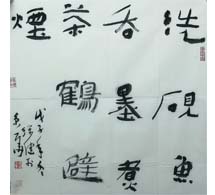 洗硯魚
吞墨煮
茶鶴避
煙
戊子年冬